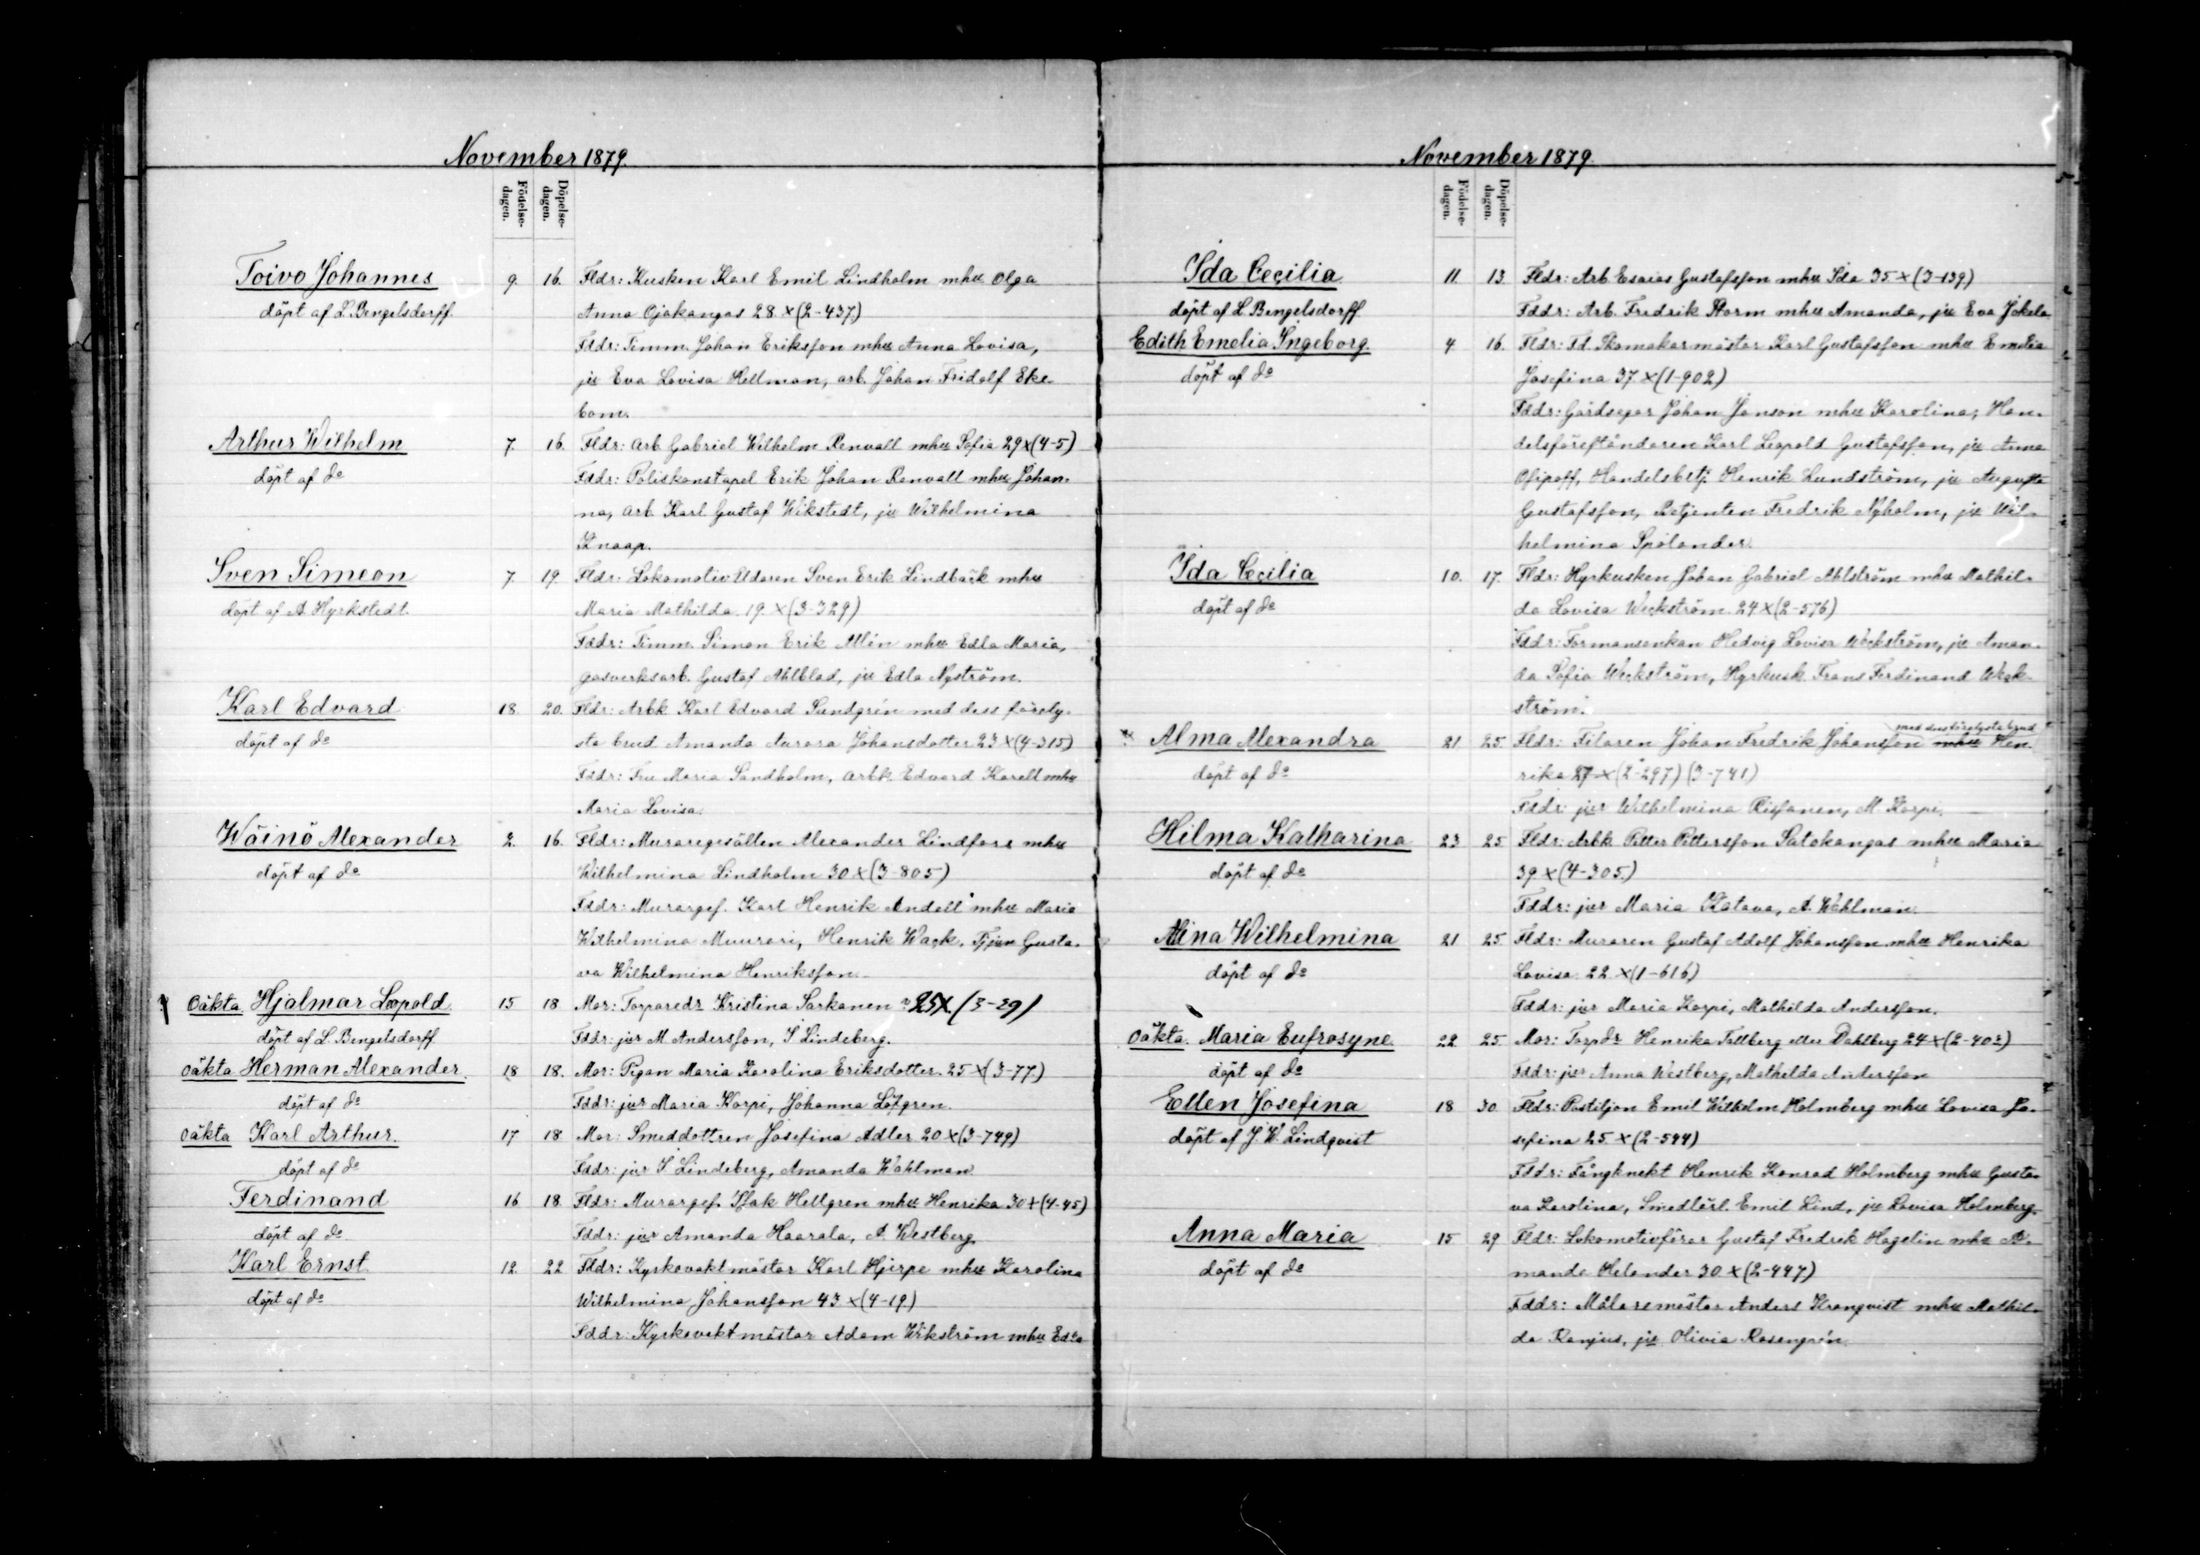 November 1879.
Födelse-dagen. Döpelse-dagen.
Toivo Johannes 9. 16. Fldr: Kusken Karl Emil Lindholm mhu Olga
döpt af L. Bengelsdorff. Anna Ojakangas 28 x (2-437)
Fddr: Timm. Johan Eriksson mhu Anna Lovisa,
ju Eva Lovisa Hellman, arb. Johan Fridolf Eke-
bom.
Arthur Wilhelm 7. 16. Fldr: Arb Gabriel Wilhelm Renvall mhu Sofia 29 x (4-5)
döpt af do Fddr: Poliskonstapel Erik Johan Renvall mhu Johan-
na, arb. Karl Gustaf Wikstedt, ju Wilhelmina
Knaap.
Sven Simeon 7. 19. Fldr: Lokomotiveldaren Sven Erik Lindbäck mhu
döpt af A. Hyrkstedt. Maria Mathilda 19. x (3-329)
Fddr: Timm. Simon Erik Allén mhu Edla Maria,
gasverksarb. Gustaf Ahlblad, ju Edla Nyström.
Karl Edvard 18. 20. Fldr: Arbk Karl Edvard Sundgrén med dess förely-
döpt af do sta brud Amanda Aurora Johansdotter 23 x (4-315)
Fddr: Fru Maria Sandholm, arbk Edvard Karell mhu
Maria Lovisa.
Wäinö Alexander 2. 16. Fldr: Muraregesällen Alexander Lindfors mhu
döpt af do Wilhelmina Lindholm 30 x (3-805)
Fddr: Murargef. Karl Henrik Andell mhu Maria
Wilhelmina Muurari, Henrik Wack. Tjän Gusta-
va Wilhelmina Henriksson.
Oäkta Hjalmar Leopold 15 18 Mor: Torparedr Kristina Sarkanen 25x (3-29)
döpt af L. Bengelsdorff Fddr: jur M. Andersson, I Lindeberg.
Oäkta Herman Alexander. 18 18. Mor: Pigan Maria Karolina Eriksdotter. 25 x (3-77.)
döpt af do Fddr: jur Maria Korpi, Johanna Löfgren.
Oäkta Karl Arthur. 17 18 Mor: Smeddottren Josefina Adler 20 x (3-749)
döpt af do Fddr: jur I Lindeberg, Amanda Wahlman
Ferdinand 16 18 Fldr: Murargef. Isak Hellgren mhu Henrika 30 x (4-45)
döpt af do Fddr: jur Amanda Haarala, A. Westberg.
Karl Ernst. 12. 22 Fddr: Kyrkovaktmästar Karl Hjerpe mhu Karolina
döpt af do Wilhelmina Johansson 43 x (4-19)
Fddr: Kyrkovaktmästar Adam Wikström mhu Edla
November 1879.
Födelse-dagen. Döpelse-dagen.
Ida Cecilia 11. 13 Fldr: Arb Esaias Gustafsson mhu Ida 35 x (3-139)
döpt af L. Bengelsdorff Fddr: Arb. Fredrik Storm mhu Amanda, ju Eva Jokela
Edith Emelia Ingeborg. 4 16. Fldr: Fd. Skomakarmästar Karl Gustafsson mhu Emelia
döpt af do Josefina 37 x (1-902)
Fddr: Gårdsegar Johan Janson mhu Karolina, Han-
delsföreståndaren Karl Leopold Gustafsson, ju Anna
Osipoff, Handelsbetj. Henrik Lundström, ju Augusta
Gustafsson, Betjenten Fredrik Nyholm, ju Wil-
helmina Spolander.
Ida Cecilia 10. 17. Fldr: Hyrkusken Johan Gabriel Ahlström mhu Mathil-
döpt af do da Lovisa Weckström. 24 x (2-576)
Fddr: Formansenkan Hedvig Lovisa Weckström, ju Aman-
da Sofia Weckström, Hyrkusk. Frans Ferdinand Weck-
ström.
med dess förelysta brud
Alma Alexandra 21 25. Fldr: Filaren Johan Fredrik Johansson mhu Hen-
döpt af do rika 27 x (2-297) (3-741)
Fddr: jur Wilhelmina Risfanen, M. Korpi.
Hilma Katharina 23 25 Fldr: Arbk Petter Pettersson Satokangas mhu Maria
döpt af do 39 x (4-305)
Fddr: jur Maria Katava, A. Wahlman.
Aina Wilhelmina 21 25. Fldr: Muraren Gustaf Adolf Johansson mhu Henrika
döpt af do Lovisa 22 x (1-616)
Fddr: jur Maria Korpi, Mathilda Andersson.
Oäkta. Maria Eufrosyne 22 25. Mor: Torpdr Henrika Tallberg eller Dahlberg 24 x (2-402)
döpt af do Fddr: jur Anna Westberg, Mathilda Andersson
Ellen Josefina 18 30. Fldr: Postiljon Emil Wilhelm Holmberg mhu Lovisa Jo-
döpt af J. W. Lindqvist sefina 25. x (2-544)
Fddr: Fångknekt Henrik Konrad Holmberg mhu Gusta-
va Karolina, Smedlärl. Emil Lind, ju Lovisa Holmberg.
Anna Maria 15 29 Fldr: Lokomotivförar Gustaf Fredrik Hagelin mhu A-
döpt af do manda Helander 30 x (2-447)
Fddr: Målaremästar Anders Kranqvist mhu Mathil-
da Ranjus, ju Olivia Rosengrén.